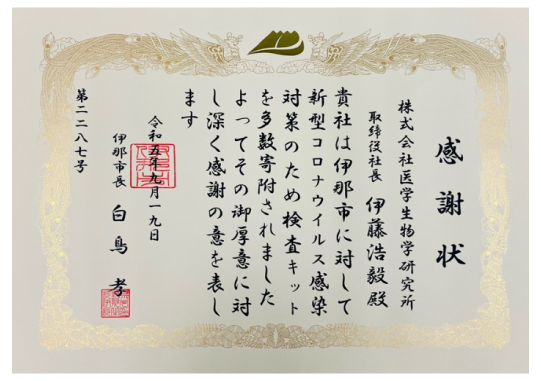 感謝状
株式会社医学生物学研究所
取締役社長 伊藤浩毅殿
貴社は伊那市に対して
新型コロナウイルス感染
対策のため検査キット
を多数寄附されました
よってその御厚意に対
し深く感謝の意を表し
ます
令和五年九月一九日
伊那市長 白鳥孝
第二二八七号